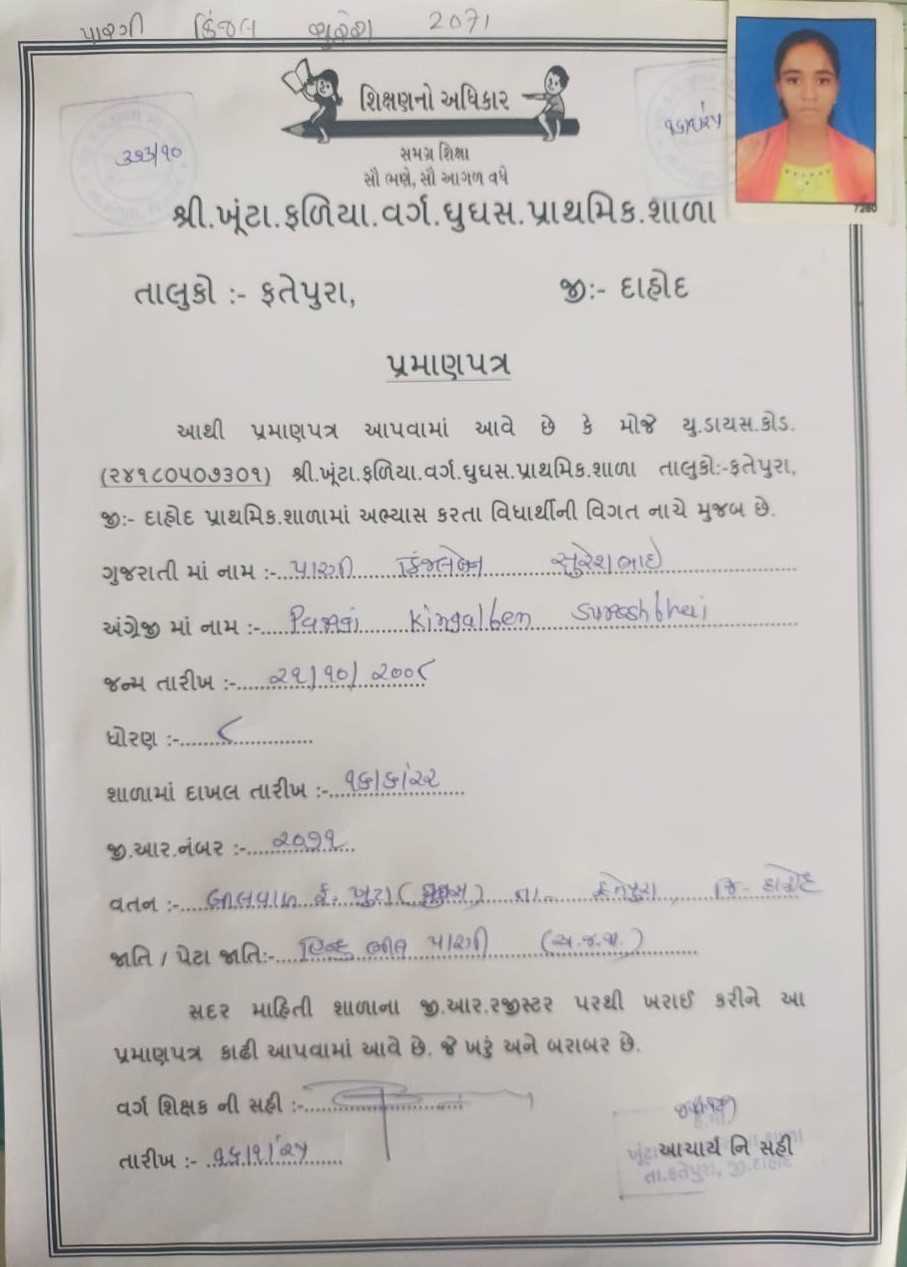 પારગી કિંજલ સુરેશ 2071
શિક્ષણનો અધિકાર
૩૧૩/૧૦
સમગ્ર શિક્ષા
સૌ ભણે, સૌ આગળ વધે
7280
શ્રી.ખૂંટા.ફળિયા.વર્ગ.ઘુઘસ.પ્રાથમિક.શાળા
તાલુકો :- ફતેપુરા, જી:- દાહોદ
પ્રમાણપત્ર
આથી પ્રમાણપત્ર આપવામાં આવે છે કે મોજે યુ.ડાયસ.કોડ.
(૨૪૧૮૦૫૦૭૩૦૧) શ્રી.ખૂંટા.ફળિયા.વર્ગ.ઘુઘસ.પ્રાથમિક.શાળા તાલુકો:-ફતેપુરા,
જી:- દાહોદ પ્રાથમિક.શાળામાં અભ્યાસ કરતા વિધાર્થીની વિગત નાચે મુજબ છે.
ગુજરાતી માં નામ :- પારગી કિંજલબેન સુરેશભાઇ
અંગ્રેજી માં નામ :- Pargi Kingalben Sureshbhai
જન્મ તારીખ :- ૨૧/૧૦/૨૦૦૮
ધોરણ :- ૮
શાળામાં દાખલ તારીખ :- ૧૬/૬/૨૨
જી.આર.નંબર :- ૨૦૭૧
વતન :- ફ. ખુટા (ઘુઘસ) તા. ફતેપુરા, જિ- દાહોદ
જાતિ / પેટા જાતિ:- હિન્દુ ભીલ પારગી (અ.જ.જા.)
સદર માહિતી શાળાના જી.આર.રજીસ્ટર પરથી ખરાઈ કરીને આ
પ્રમાણપત્ર કાઢી આપવામાં આવે છે. જે ખરું અને બરાબર છે.
વર્ગ શિક્ષક ની સહી :-
તારીખ :- ૧૬/૧/૨૫
આચાર્ય નિ સહી
તા.ફતેપુરા, જી.દાહોદ